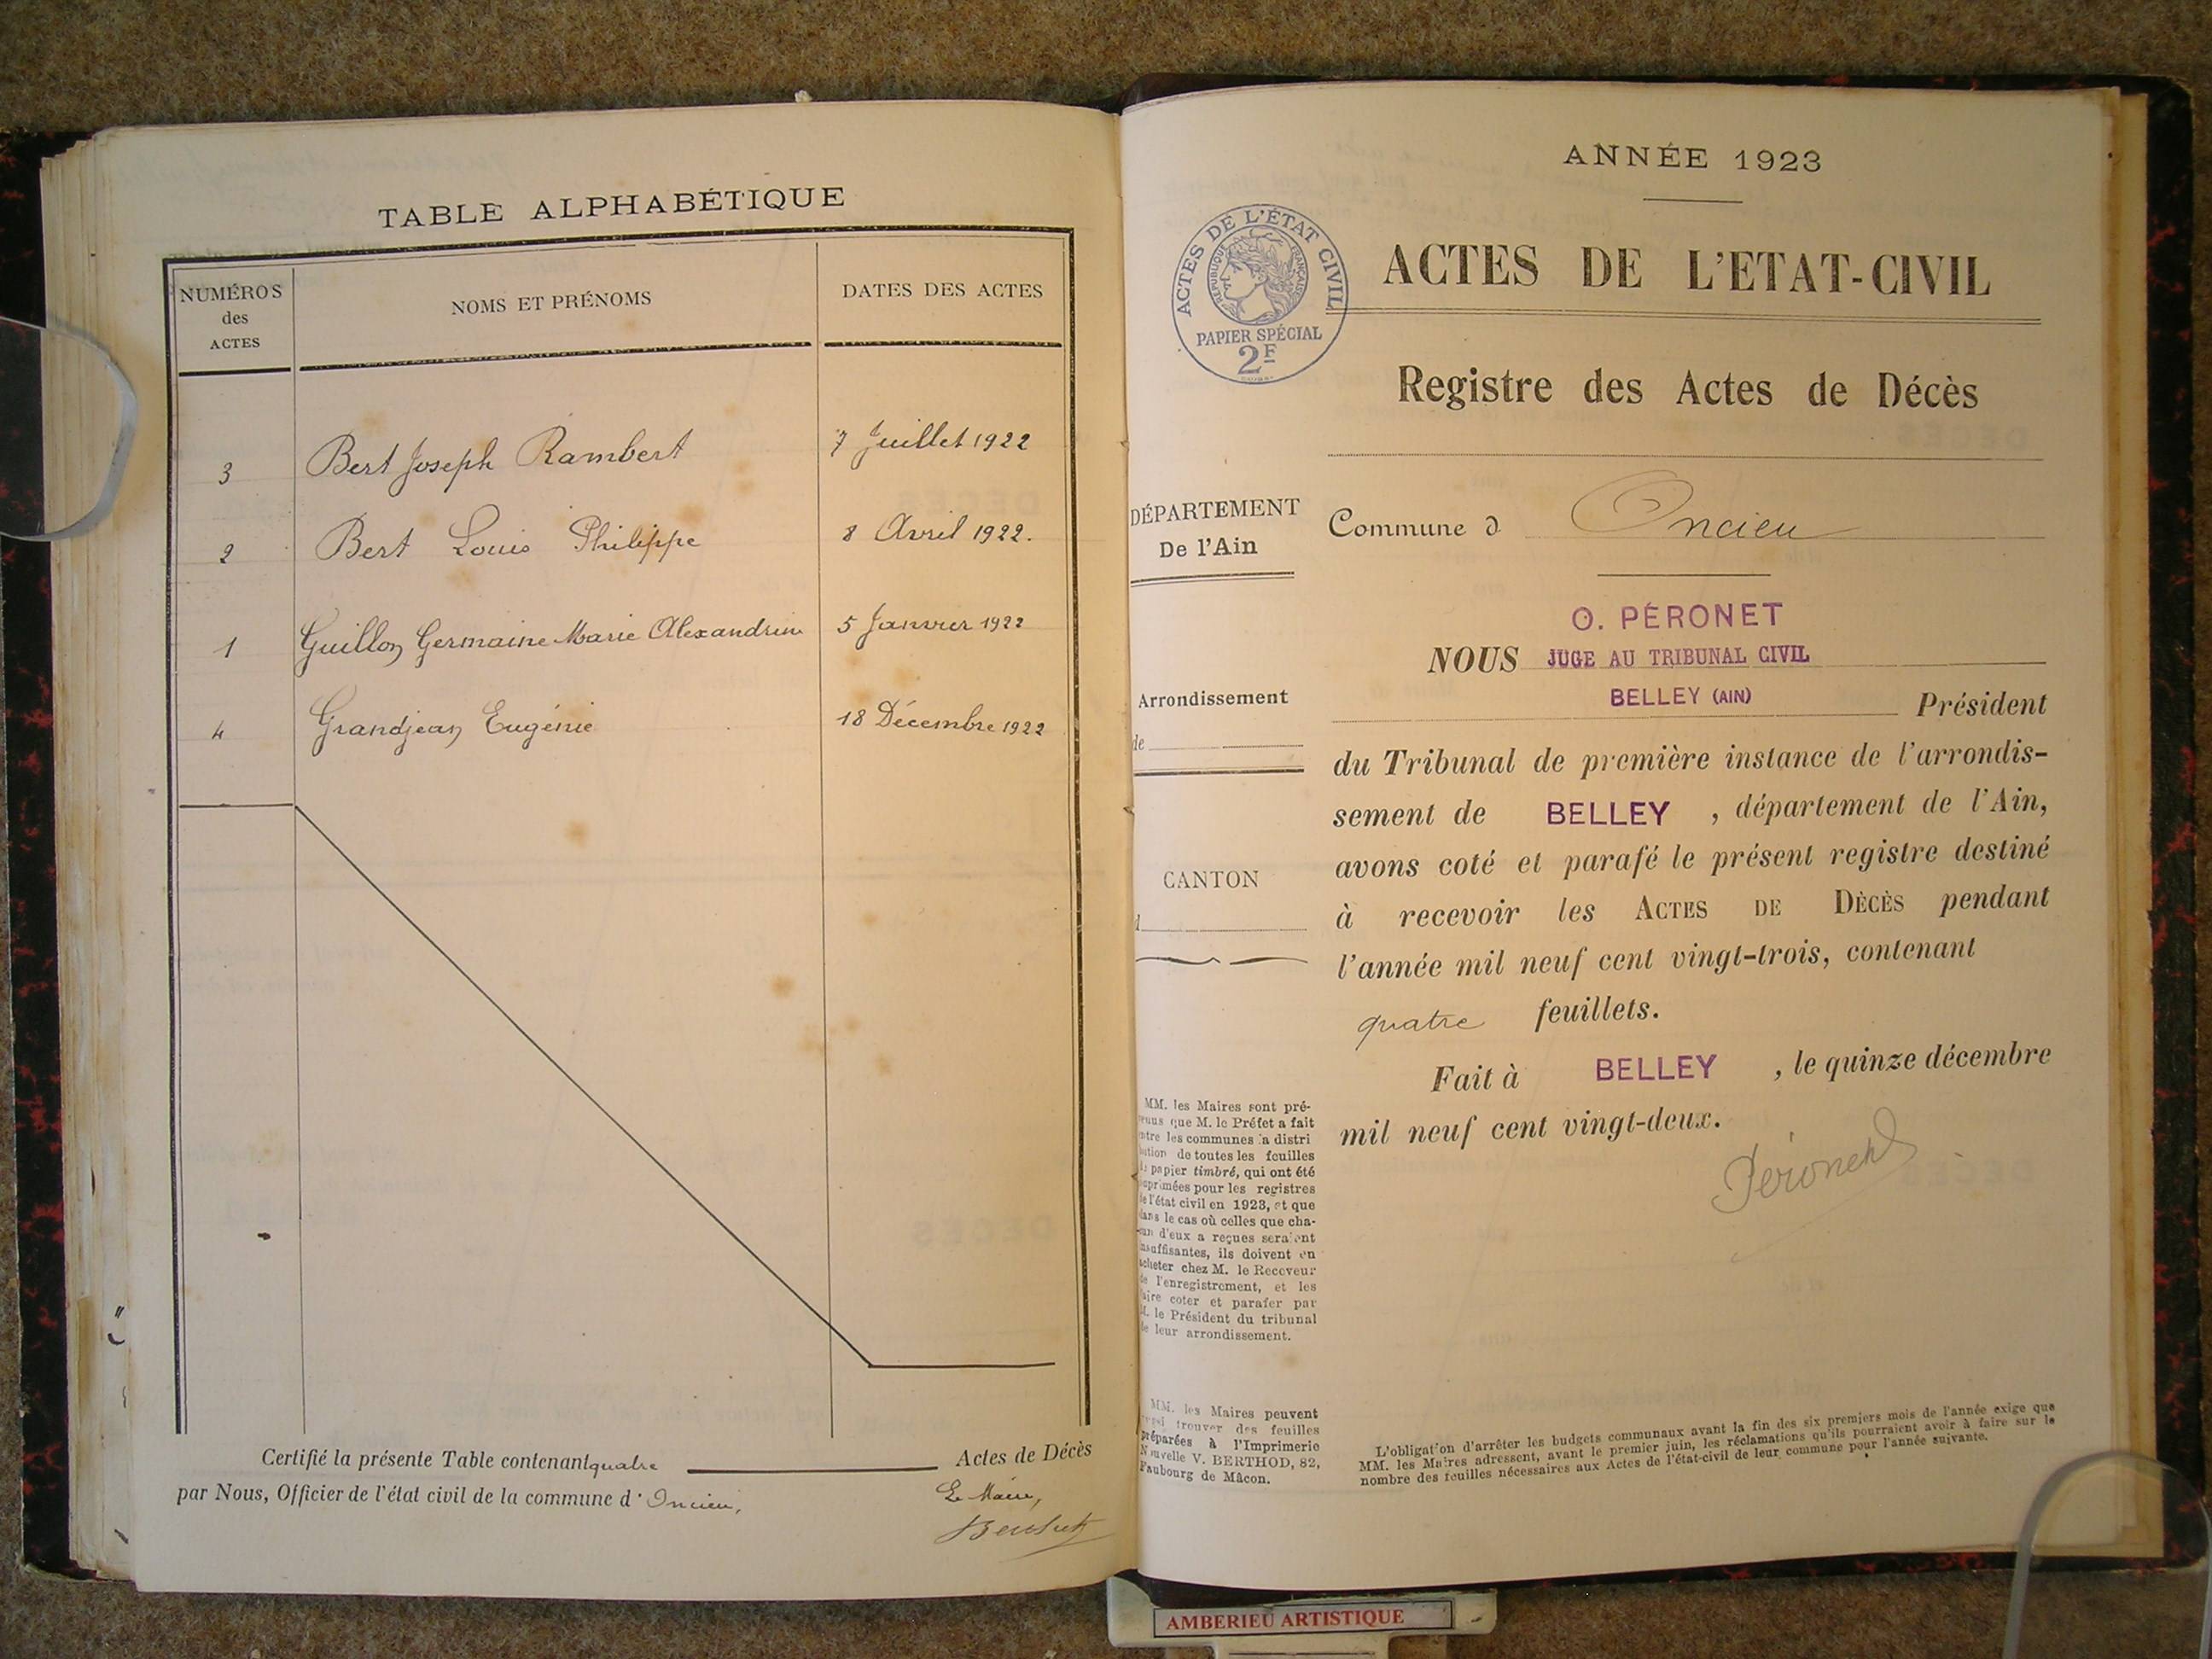 TABLE ALPHABÉTIQUE
NUMÉROS
des
ACTES
NOMS ET PRÉNOMS
DATES DES ACTES
3 Bert Joseph Rambert 7 Juillet 1922
2 Bert Louis Philippe 8 Avril 1922.
1 Guillon Germaine Marie Alexandrine 5 Janvier 1922
4 Grandjean Eugénie 18 Décembre 1922
Certifié la présente Table contenant quatre Actes de Décès
par Nous, Officier de l'état civil de la commune d' Oncieu,
Le Maire,
ANNÉE 1923
ACTES DE L'ÉTAT CIVIL
RÉPUBLIQUE FRANÇAISE
PAPIER SPÉCIAL
2F
ACTES DE L'ETAT-CIVIL
Registre des Actes de Décès
DÉPARTEMENT
De l'Ain
Commune d Oncieu
O. PÉRONET
NOUS JUGE AU TRIBUNAL CIVIL
BELLEY (AIN) Président
Arrondissement
de
du Tribunal de première instance de l'arrondis-
sement de BELLEY , département de l'Ain,
avons coté et parafé le présent registre destiné
CANTON
d
à recevoir les ACTES DE DÉCÈS pendant
l'année mil neuf cent vingt-trois, contenant
quatre feuillets.
Fait à BELLEY , le quinze décembre
mil neuf cent vingt-deux.
Péronet
MM. les Maires sont pré-
venus que M. le Préfet a fait
entre les communes la distri
bution de toutes les feuilles
de papier timbré, qui ont été
imprimées pour les registres
de l'état civil en 1923, et que
dans le cas où celles que cha-
cun d'eux a reçues seraient
insuffisantes, ils doivent en
acheter chez M. le Receveur
de l'enregistrement, et les
faire coter et parafer par
M. le Président du tribunal
de leur arrondissement.
MM. les Maires peuvent
aussi trouver des feuilles
préparées à l'Imprimerie
Nouvelle V. BERTHOD, 82,
Faubourg de Mâcon.
L'obligation d'arrêter les budgets communaux avant la fin des six premiers mois de l'année exige que
MM. les Maires adressent, avant le premier juin, les réclamations qu'ils pourraient avoir à faire sur le
nombre des feuilles nécessaires aux Actes de l'état-civil de leur commune pour l'année suivante.
AMBERIEU ARTISTIQUE